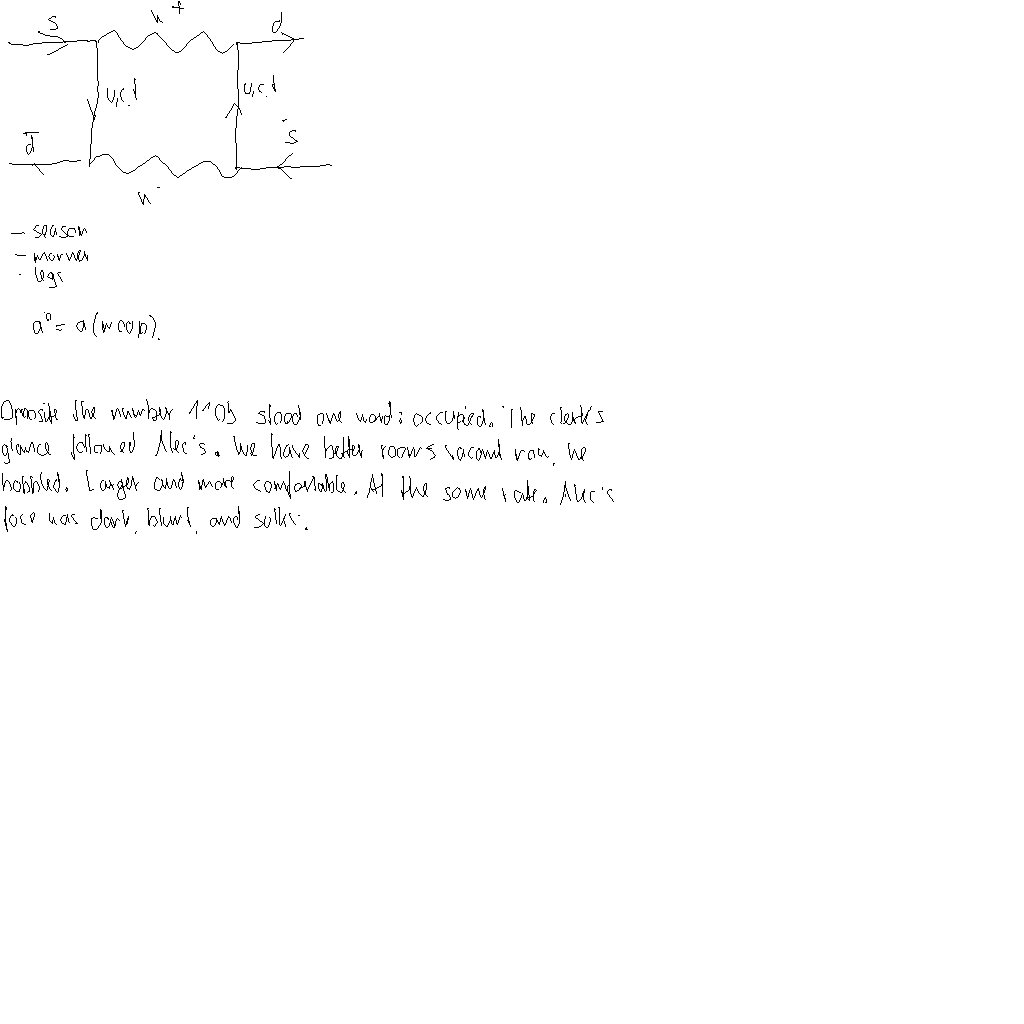 s d
u,c,t u,c,t
d̅ s̅
- season
- legs
Oposite the number 1105 stood one word: occupied. The clerk's
glance followed Alec's. We have better rooms vacant now, he
babbled. Larger and more comfortable. At the same rate. Alec's
face was dark, blunt, and sulky.